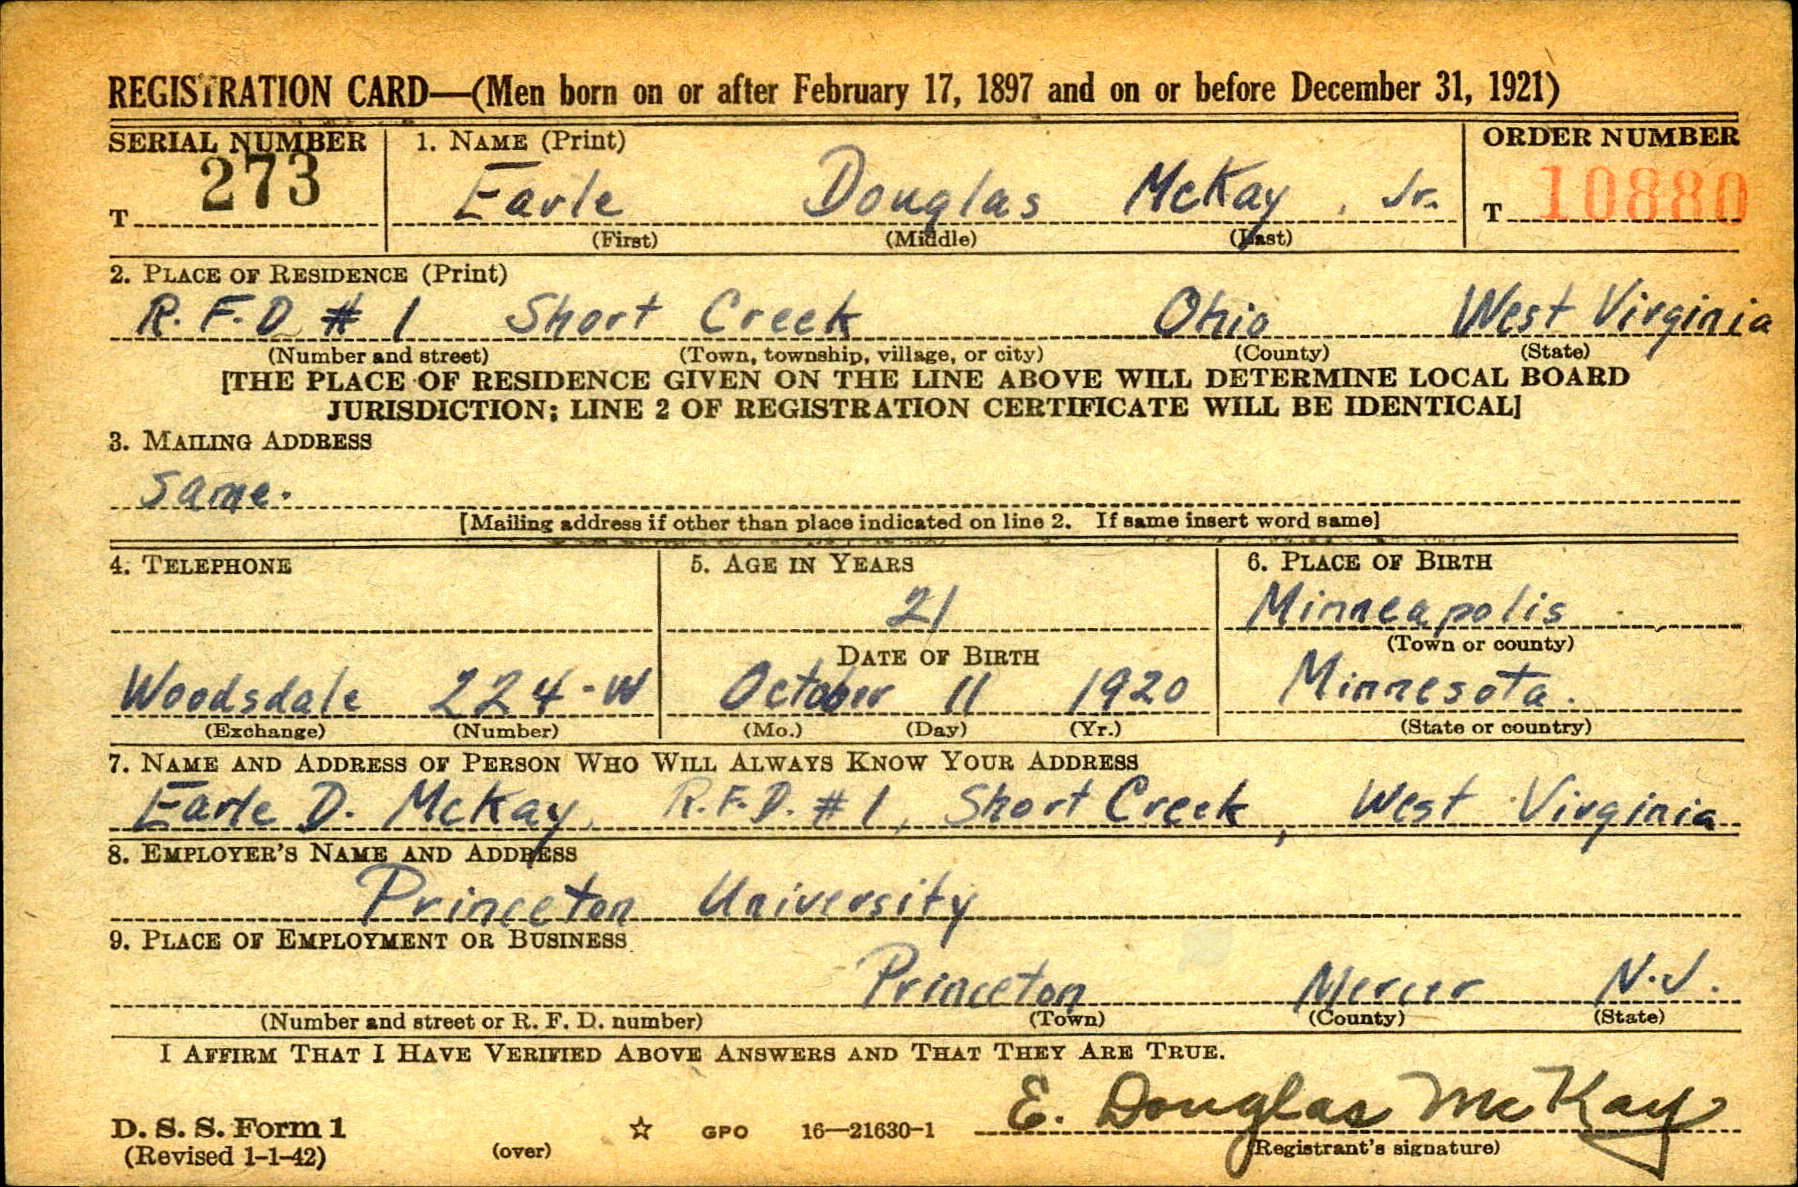 REGISTRATION CARD—(Men born on or after February 17, 1897 and on or before December 31, 1921)
SERIAL NUMBER 1. NAME (Print) ORDER NUMBER
T 273 Earle Douglas McKay, Jr. T 10880
(First) (Middle) (Last)
2. PLACE OF RESIDENCE (Print)
R.F.D # 1 Short Creek Ohio West Virginia
(Number and street) (Town, township, village, or city) (County) (State)
[THE PLACE OF RESIDENCE GIVEN ON THE LINE ABOVE WILL DETERMINE LOCAL BOARD
JURISDICTION; LINE 2 OF REGISTRATION CERTIFICATE WILL BE IDENTICAL]
3. MAILING ADDRESS
Same.
[Mailing address if other than place indicated on line 2. If same insert word same]
4. TELEPHONE 5. AGE IN YEARS 6. PLACE OF BIRTH
21 Minneapolis
DATE OF BIRTH (Town or county)
Woodsdale 224-W October 11 1920 Minnesota.
(Exchange) (Number) (Mo.) (Day) (Yr.) (State or country)
7. NAME AND ADDRESS OF PERSON WHO WILL ALWAYS KNOW YOUR ADDRESS
Earle D. McKay, R.F.D. #1, Short Creek, West Virginia
8. EMPLOYER'S NAME AND ADDRESS
Princeton University
9. PLACE OF EMPLOYMENT OR BUSINESS
Princeton Mercer N.J.
(Number and street or R. F. D. number) (Town) (County) (State)
I AFFIRM THAT I HAVE VERIFIED ABOVE ANSWERS AND THAT THEY ARE TRUE.
E. Douglas McKay
D. S. S. Form 1 GPO 16—21630-1
(Revised 1-1-42) (over) (Registrant's signature)